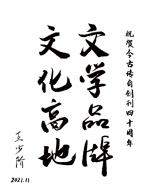 祝贺今古传奇创刊四十周年
文学品牌
文化高地
王少阶
2021.11